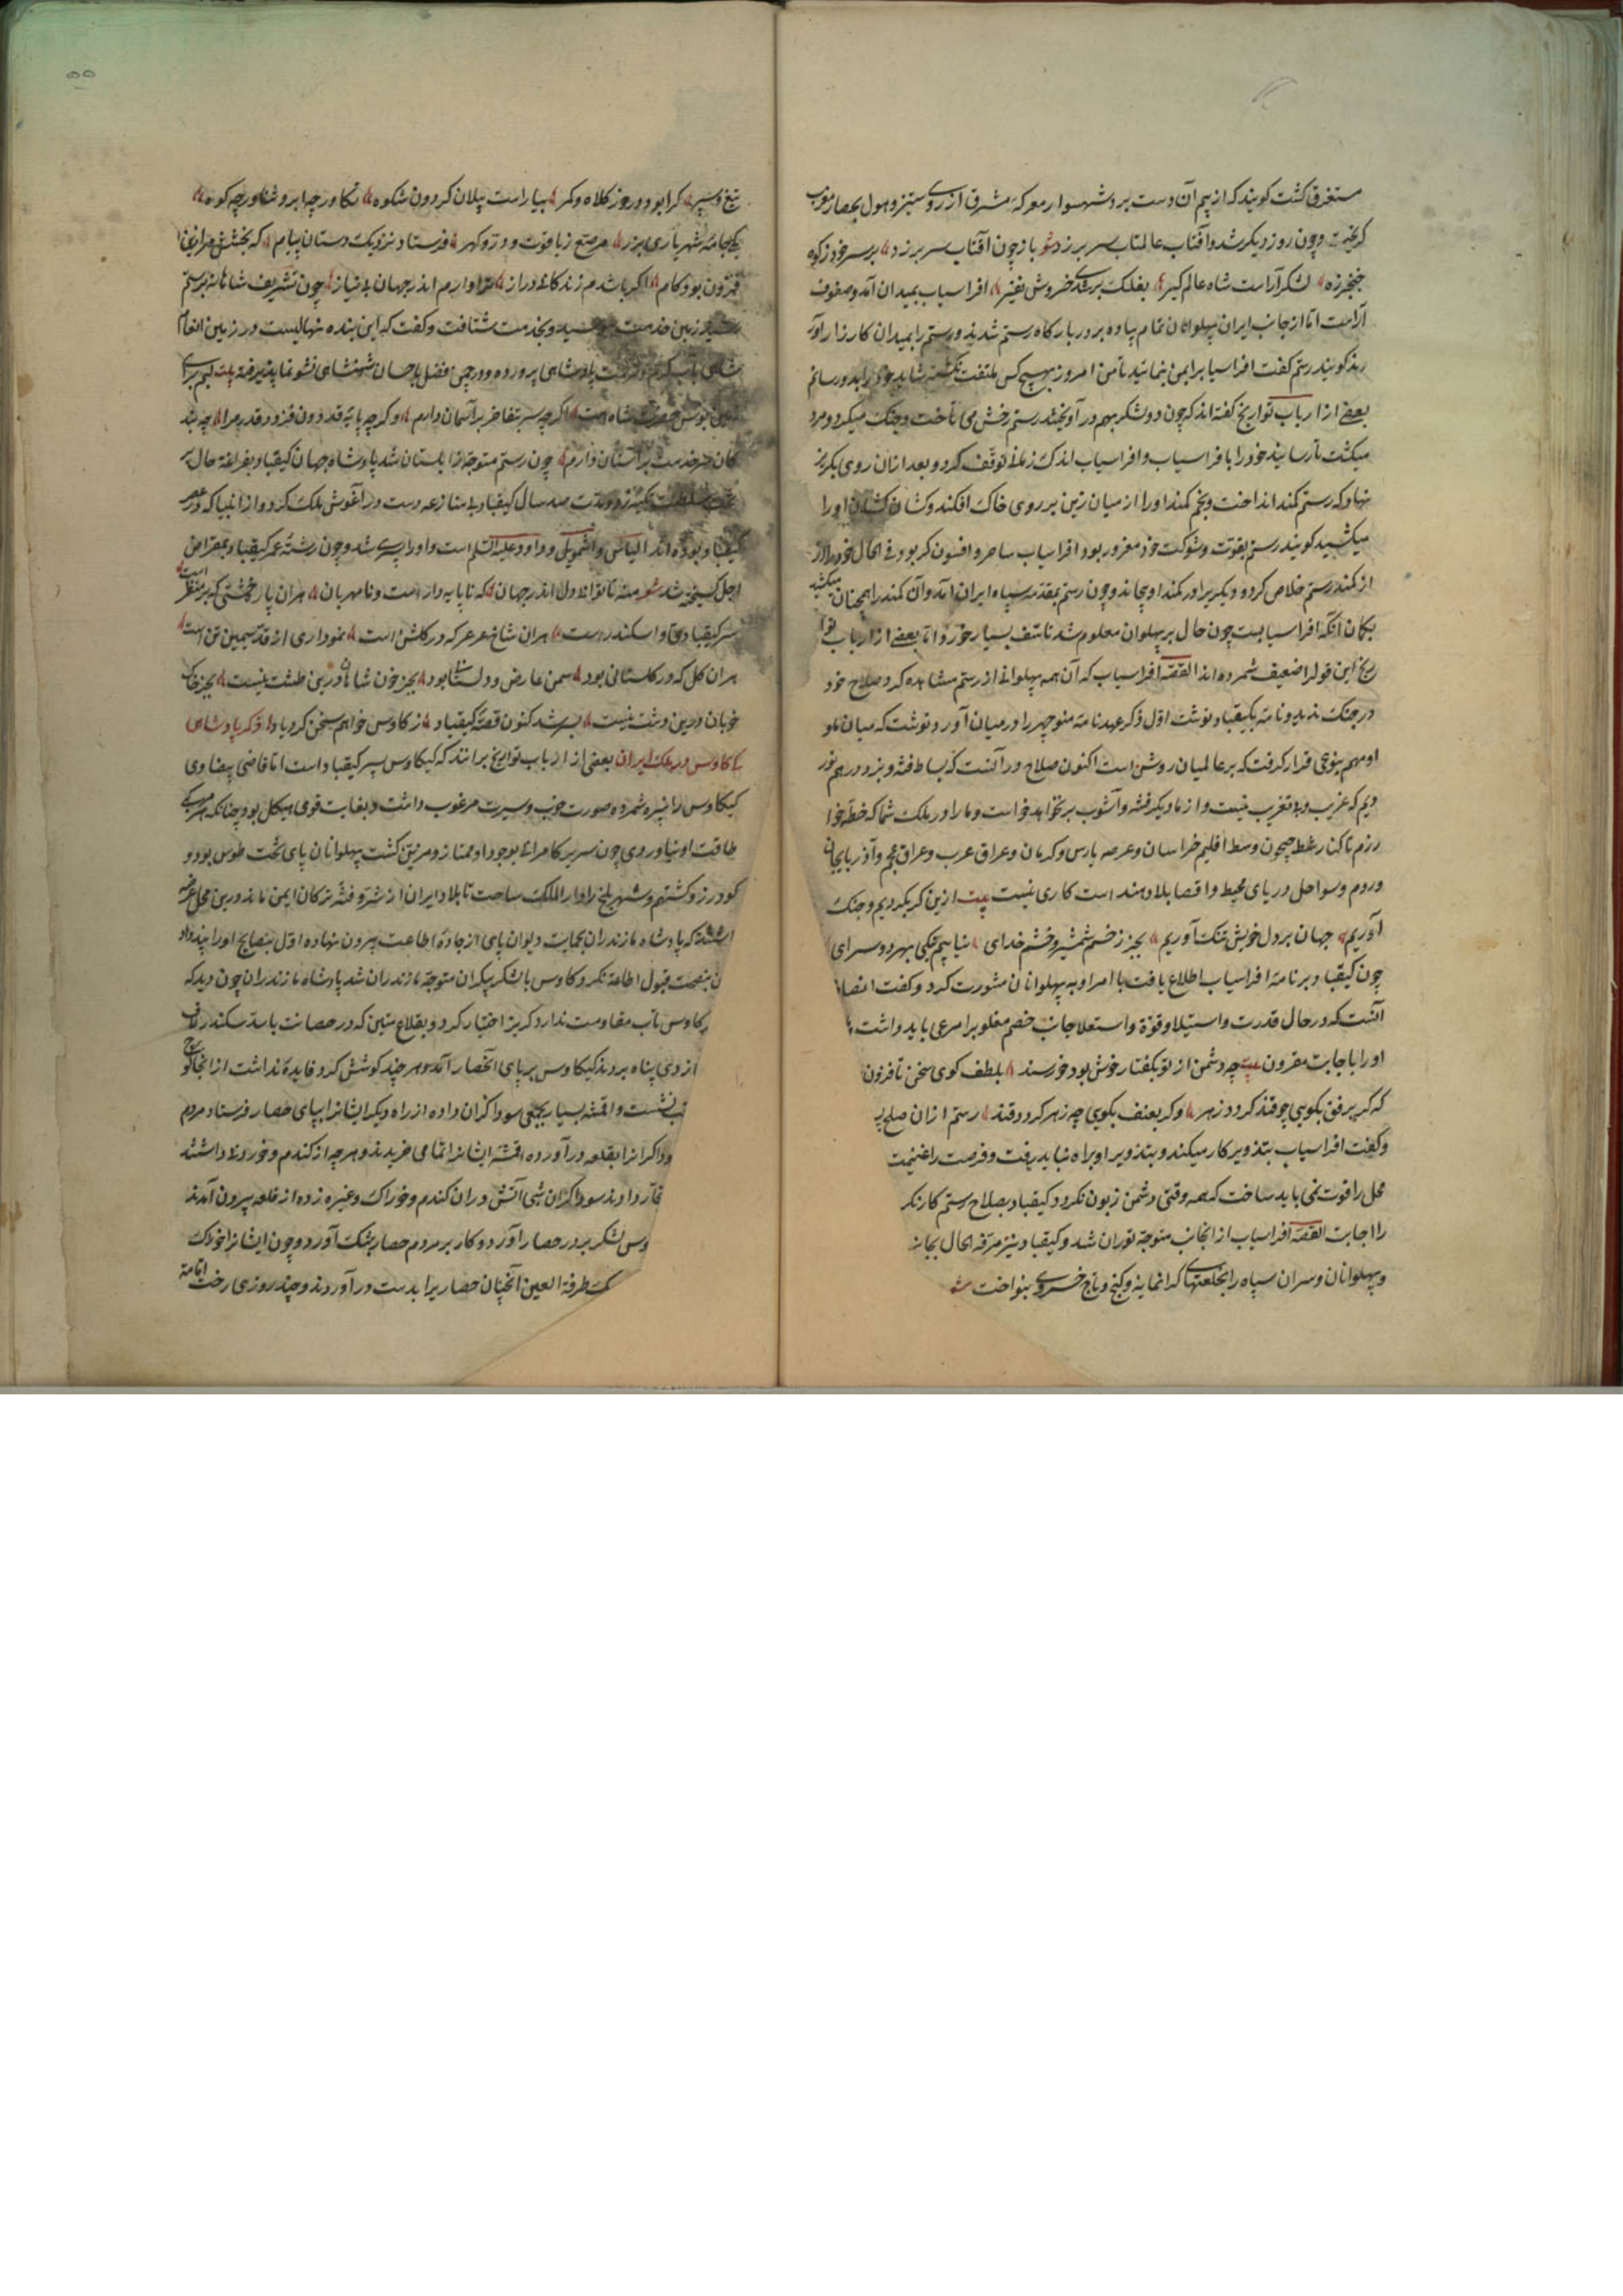 مستغرق کشت کویند که از بیم آن دست برد شهسوار معرکهٔ مشرق از روی ستیز و هول بحصار مغرب
کریخت و چون روز دیکر شد و آفتاب عالمتاب سر بر زد شو باز چون آفتاب سر بر زد بر سر خود ز کوه
خنجر زد لشکر آراست شاه عالم کیر بفلک بر شدی خروش نفیر افراسیاب بمیدان آمد و صفوف
آراست اما از جانب ایران پهلوانان تمام پیاده بر در بارکاه رستم شدند و رستم را بمیدان کارزار آور
دند کویند رستم کفت افراسیاب را بمن بنمائید تا من امروز بهیچ کس ملتفت نکشته شاید خود را بدو رسانم
بعضی از ارباب تواریخ کفته اند که چون دو لشکر بهم در آویختند رستم رخش می تاخت و جنک میکرد و مرد
میکشت تا رسانید خود را با افراسیاب و افراسیاب اندک زمانی توقف کرد و بعد از ان روی بکریز
نهاد که رستم کمند انداخت و بخم کمند او را از میان زین بر روی خاک افکند و کشان کشان او را
میکشید کویند رستم بقوت و شوکت خود مغرور بود افراسیاب ساحر و افسون کر بود فی الحال خود را از
از کمند رستم خلاص کرد و دیکریرا در کمند او پیچاند و چون رستم بمقدمه سپاه ایران آمد و آن کمند را همچنان میکشید
بکمان آنکه افراسیابست چون حال بر پهلوان معلوم شد تاسف بسیار خورد و اما بعضی از ارباب توا
ریخ این قول را ضعیف شمرده اند القصه افراسیاب که آن همه پهلوانی از رستم مشاهده کرد صلاح خود
در جنک ندید و نامه بکیقباد نوشت اول ذکر عهدنامه منوچهر را در میان آورد و نوشت که میان ما و
او مهم بنوعی قرار کرفت که بر عالمیان روشن است اکنون صلاح در آنست که بساط فتنه و نبرد در هم نور
دیم که غریب و بد تغریب نیست و از ما دیکر فتنه و آشوب بر نخواهد خواست و ما را در ملک شما که خطه خوا
رزم تا کنار شط جیحون و سط اقلیم خراسان و عرصه پارس و کرمان و عراق عرب و عراق عجم و آذربایجان
و روم و سواحل دریای محیط و اقصا بلاد هند است کاری نیست بیت ازین کر بکردیم و جنک
آوریم جهان بر دل خویش تنک آوریم بجز زخم شمشیر و خشم خدای نیابیم جیزی بهر دو سرای
چون کیقباد بر نامه افراسیاب اطلاع یافت با امرا و به پهلوانان مشورت کرد و کفت انصاف
آنست که در حال قدرت و استیلا و قوة و استعلا جانب خصم مغلوب را مرعی باید داشت
او را باجابت مقرون بیت چه دشمن از تو بکفتار خوش بود خورسند بلطف کوی سخن تا فزون
که کر برفق بکویی چو قند کردد زهر و کر بعنف بکویی چه زهر کردد قند رستم از ان صلح
و کفت افراسیاب بتذویر کار میکند و بتذویر او براه نباید رفت و فرصت را غنیمت
محل را فوت نمی باید ساخت که همه وقتی دشمن زبون نکردد کیقباد بصلاح رستم کار نکر
را اجابت القصه افراسیاب از انجانب متوجه توران شد و کیقباد نیز مرفه الحال بجانب
و پهلوانان و سران سپاه را بخلعتهای کرانمایه و کنج و تاج خسروی بنواخت شو
تیغ و سپر کرا بود در روز کلاه و کمر بیاراست پیلان کردون شکوه تکاور چه ابر و شناور چه کوه
یکی جامهٔ شهریاری بزر مرصع ز یاقوت و در و کهر فرستاد نزدیک دستان پیام که بخشش مرا زین
فزون بود کام اکر باشدم زندکانی دراز ترا دارم اندر جهان بی نیاز چون تشریف شاهانه برستم
رسید زمین خدمت بوسید و بخدمت شتافت و کفت که این بنده نهالیست در زمین انعام
شاهی بآب کرم و تربیت پادشاهی پرورده و در چمن فضل باحسان شهنشاهی نشو نما پذیرفته بیت لبم برای
زمین بوس حضرت شاه است اکر چه سر بتفاخر بر آسمان دارم و کر چه پایه قدر دون فزود قدر مرا چه بند
کان سر خدمت بر آستان دارم چون رستم متوجه زابلستان شد پادشاه جهان کیقباد بفراغة حال بر
تخت سلطنت تکیه زد و مدت صد سال کیقباد بی منازعه دست در آغوش ملک کرد و از انبیا که در عصر
کیقباد بوده اند الیاس و اشمویل و داود علیه السلم است و او را پسری شد و چون رشتهٔ عمر کیقباد بمقراض
اجل کسیخته شد شو منه تا توانی دل اندر جهان که ناپایه دار است و نامهربان هر ان پاره خشتی که بر منظر است
سر کیقبادی و اسکندریست هر ان شاخ عرعر که در کلشن است نموداری از قد سیمین تن است
هر ان کل که در کلستانی بود سمن عارض دلستانی بود بجز خون شاهان درین طشت نیست بجز خاک
خوبان درین دشت نیست بسر شد کنون قصهٔ کیقباد ز کاوس خواهم سخن کرد یاد ذکر پادشاهی
کاوس در ملک ایران بعضی از ارباب تواریخ برانند که کیکاوس پسر کیقباد است اما قاضی بیضاوی
کیکاوس را نبیره شمرده و صورت خوب و سیرت مرغوب داشت و بغایت قوی هیکل بود چنانکه هر مرکب
طاقت او نیاوردی چون سریر کامرانی بوجود او ممتاز و مزین کشت پهلوانان پای تخت طوس بود و
کودرز و کشتهم و شهر بلخ را دار الملک ساخت تا بلاد ایران از شر و فتنه ترکان ایمن ماند درین محل عرضه
داشتند که پادشاه مازندران بحمایت دیوان پای از جادهٔ اطاعت بیرون نهاده اول بنصایح او را پند داد
نصیحت قبول اطاعة نکرد کاوس با لشکر بیکران متوجه مازندران شد پادشاه مازندران چون دید که
کاوس تاب مقاومت ندارد کریز اختیار کرد و بقلاع متین که در حصانت با سد سکندر لاف
از وی پناه بردند کیکاوس بر پای آنحصار آمد و هر چند کوشش کرد فایدهٔ نداشت از انجا کوچ
نشست و اقمشه بسیار بجمعی سوداکران داده از راه دیکر ایشانرا بپای حصار فرستاد مردم
سوداکرانرا بقلعه در آورده اقمشه ایشانرا تمامی خریدند و هر چه از کندم و خوردنی داشتند
سوداکران شبی آتش در ان کندم و خوراک و غیره زده از قلعه بیرون آمدند
وس لشکر بر در حصار آورد و کار بر مردم حصار بتنک آورد و چون ایشانرا خوراک
طرفة العین آنچنان حصاریرا بدست در آوردند و چند روزی رخت اقامة